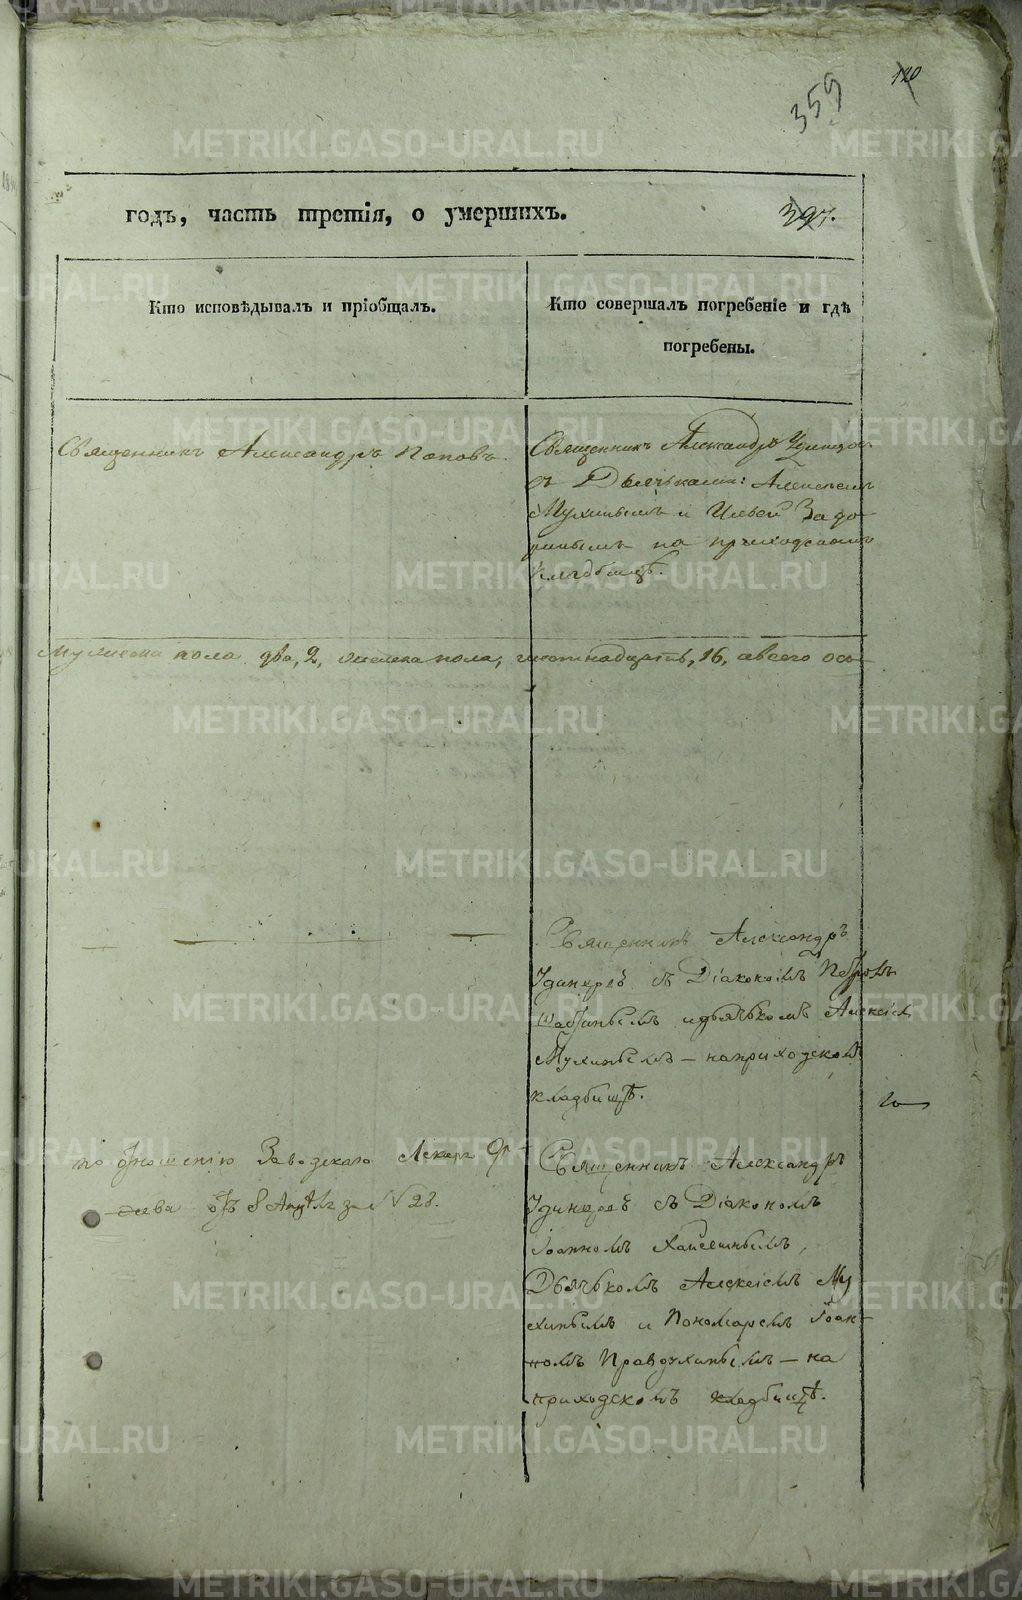 120
359
годъ, часть третія, о умершихъ.
397.
Кто исповѣдывалъ и пріобщалъ.
Кто совершалъ погребеніе и гдѣ
погребены.
Священникъ Александръ Поповъ.
Священникъ Александръ Удинцовъ
съ Дьячьками: Алексѣемъ
Мухинымъ и Ильей Задо-
ринымъ на приходскомъ
кладбищѣ.
Мужеска пола два, 2, женска пола, шестнадцать, 16, а всего осм-
Священникъ Александръ
съ Діакономъ Петромъ
и дьячькомъ Алексіем
Мухинымъ — на приходскомъ
кладбищѣ.
по отношенію Заводскаго Лекаря
отъ 8 Апрѣля за № 28.
Священникъ Александръ
съ Діакономъ
Іоанномъ
Дьячькомъ Алексіемъ Му
хинымъ и Пономаремъ Іоан-
номъ Правдухинымъ — на
приходскомъ кладбищѣ.
METRIKI.GASO-URAL.RU